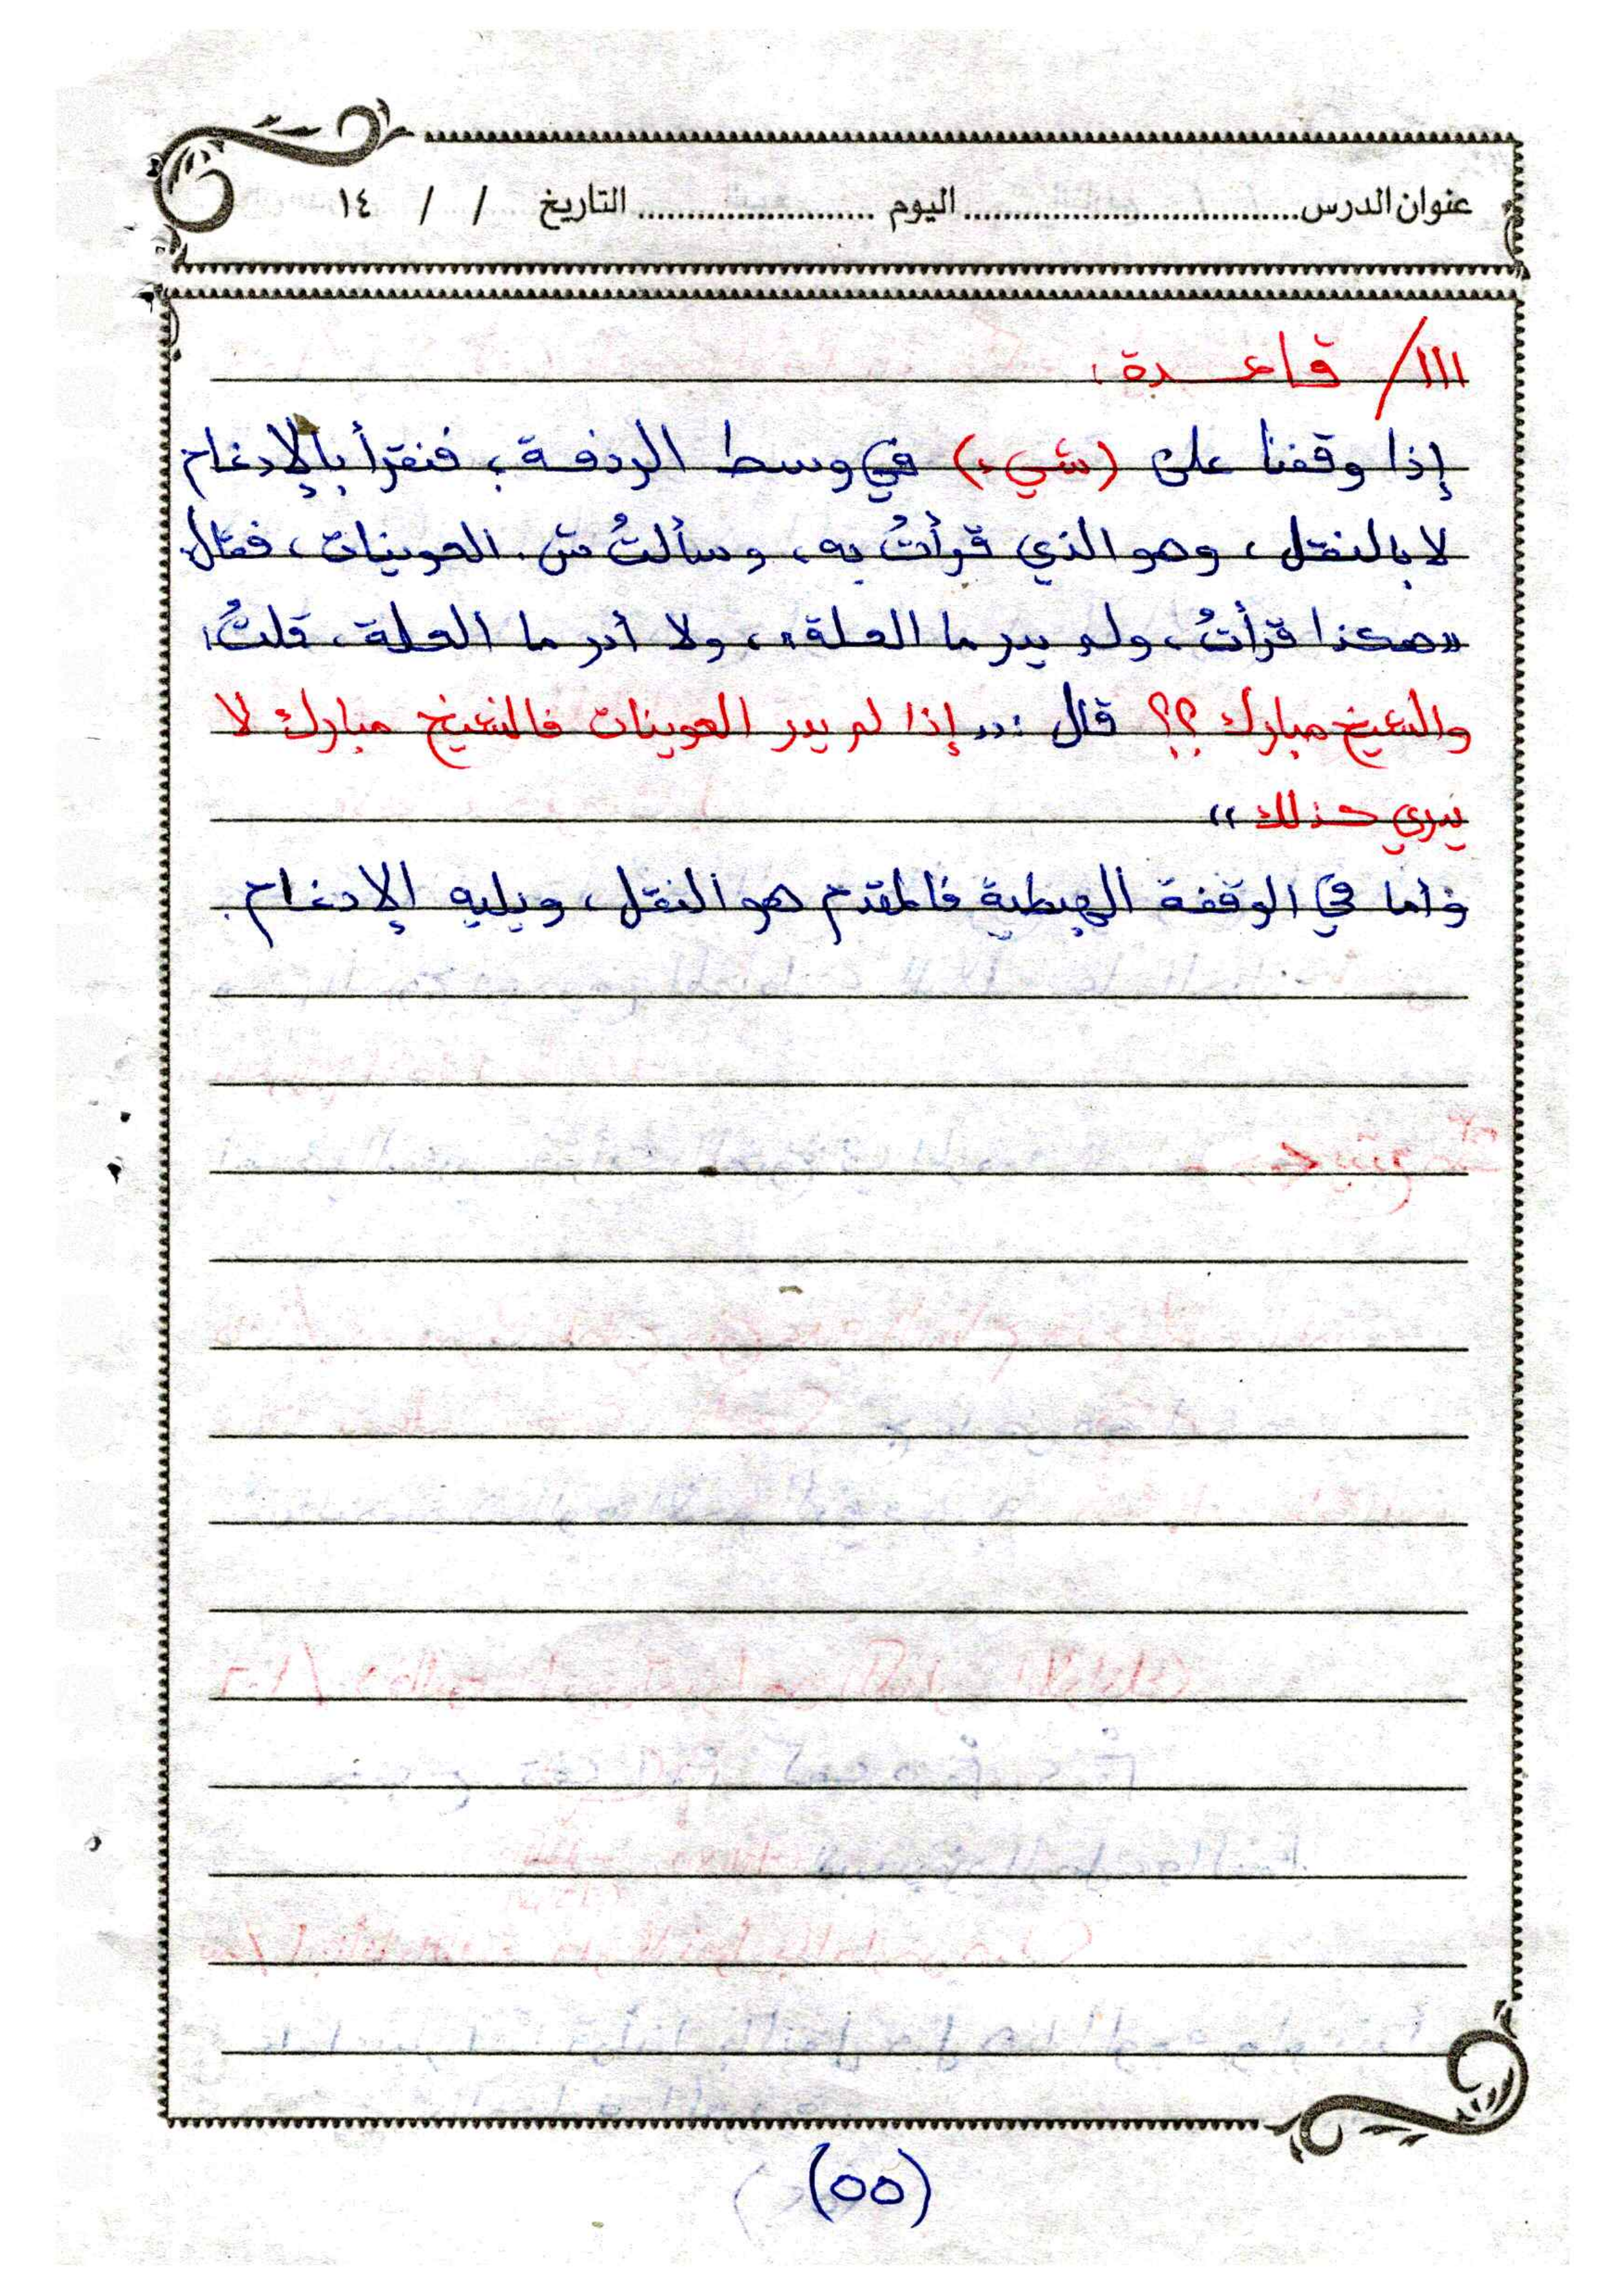 عنوان الدرس.................................. اليوم ........................ التاريخ / / ١٤
١١١/ قاعدة:
إذا وقفنا على (شيء) في وسط الردفة، فنقرأ بالإدغام
لا بالنقل، وهو الذي قرأتُ به، وسألتُ ش. العوينات، فقال:
«هكذا قرأتُ، ولم يدر ما العلة»، ولا أدر ما العلة، قلتُ:
والشيخ مبارك ؟؟ قال: «إذا لم يدر العوينات فالشيخ مبارك لا
يدري كذلك»
وأما في الوقفة الهبطية فالمقدم هو النقل، ويليه الإدغام.
(٥٥)